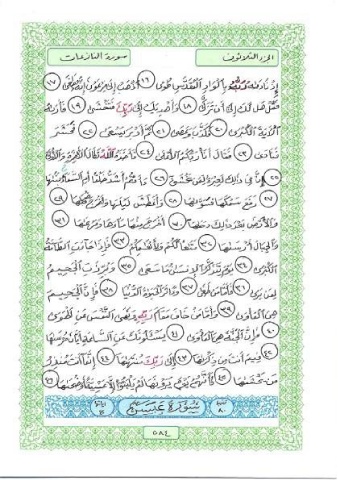 الجزء الثلاثون
سورة النازعات
إِذْ نَادَىٰهُ رَبُّهُ بِالْوَادِ الْمُقَدَّسِ طُوًى ١٦ اذْهَبْ إِلَىٰ فِرْعَوْنَ إِنَّهُ طَغَىٰ ١٧
فَقُلْ هَل لَّكَ إِلَىٰ أَن تَزَكَّىٰ ١٨ وَأَهْدِيَكَ إِلَىٰ رَبِّكَ فَتَخْشَىٰ ١٩ فَأَرَىٰهُ
الْآيَةَ الْكُبْرَىٰ ٢٠ فَكَذَّبَ وَعَصَىٰ ٢١ ثُمَّ أَدْبَرَ يَسْعَىٰ ٢٢ فَحَشَرَ
فَنَادَىٰ ٢٣ فَقَالَ أَنَا رَبُّكُمُ الْأَعْلَىٰ ٢٤ فَأَخَذَهُ اللَّهُ نَكَالَ الْآخِرَةِ وَالْأُولَىٰ
٢٥ إِنَّ فِي ذَٰلِكَ لَعِبْرَةً لِّمَن يَخْشَىٰ ٢٦ ءَأَنتُمْ أَشَدُّ خَلْقًا أَمِ السَّمَاءُ بَنَىٰهَا
٢٧ رَفَعَ سَمْكَهَا فَسَوَّىٰهَا ٢٨ وَأَغْطَشَ لَيْلَهَا وَأَخْرَجَ ضُحَىٰهَا ٢٩
وَالْأَرْضَ بَعْدَ ذَٰلِكَ دَحَىٰهَا ٣٠ أَخْرَجَ مِنْهَا مَاءَهَا وَمَرْعَىٰهَا ٣١
وَالْجِبَالَ أَرْسَىٰهَا ٣٢ مَتَٰعًا لَّكُمْ وَلِأَنْعَٰمِكُمْ ٣٣ فَإِذَا جَاءَتِ الطَّامَّةُ
الْكُبْرَىٰ ٣٤ يَوْمَ يَتَذَكَّرُ الْإِنسَٰنُ مَا سَعَىٰ ٣٥ وَبُرِّزَتِ الْجَحِيمُ
لِمَن يَرَىٰ ٣٦ فَأَمَّا مَن طَغَىٰ ٣٧ وَءَاثَرَ الْحَيَوٰةَ الدُّنْيَا ٣٨ فَإِنَّ الْجَحِيمَ
هِيَ الْمَأْوَىٰ ٣٩ وَأَمَّا مَنْ خَافَ مَقَامَ رَبِّهِ وَنَهَى النَّفْسَ عَنِ الْهَوَىٰ
٤٠ فَإِنَّ الْجَنَّةَ هِيَ الْمَأْوَىٰ ٤١ يَسْـَٔلُونَكَ عَنِ السَّاعَةِ أَيَّانَ مُرْسَىٰهَا
٤٢ فِيمَ أَنتَ مِن ذِكْرَىٰهَا ٤٣ إِلَىٰ رَبِّكَ مُنتَهَىٰهَا ٤٤ إِنَّمَا أَنتَ مُنذِرُ
مَن يَخْشَىٰهَا ٤٥ كَأَنَّهُمْ يَوْمَ يَرَوْنَهَا لَمْ يَلْبَثُوا إِلَّا عَشِيَّةً أَوْ ضُحَىٰهَا ٤٦
سُورَةُ عَبَسَ
٥٨٤